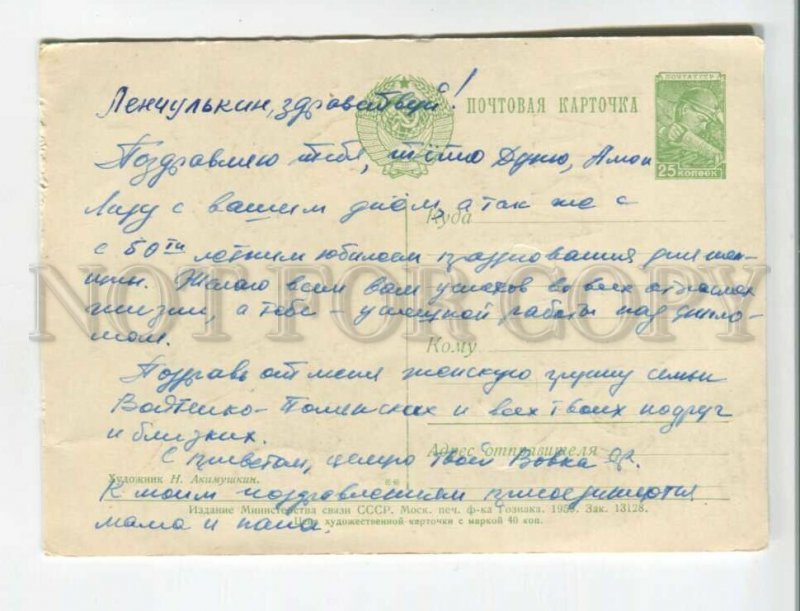 Ленчулькин, здравствуй!
ПОЧТОВАЯ КАРТОЧКА
ПОЧТА СССР
25 КОПЕЕК
Поздравляю тебя, тётю Дуню,
Лиду с вашим днём, а так же с
Куда
с 50ти летним юбилеем празднования дня жен-
щины. Желаю всем вам успехов во всех отраслях
NOT FOR COPY
жизни, а тебе – успешной работы над дипло-
мом.
Кому
Поздравь от меня женскую группу семьи
и всех твоих подруг
и близких.
Адрес отправителя
С приветом, целую твой Вовка
Художник Н. Акимушкин.
К моим поздравлениям присоединяются
Издание Министерства связи СССР. Моск. печ. ф-ка Гознака. Зак. 13128.
мама и папа.
Цена художественной карточки с маркой 40 коп.